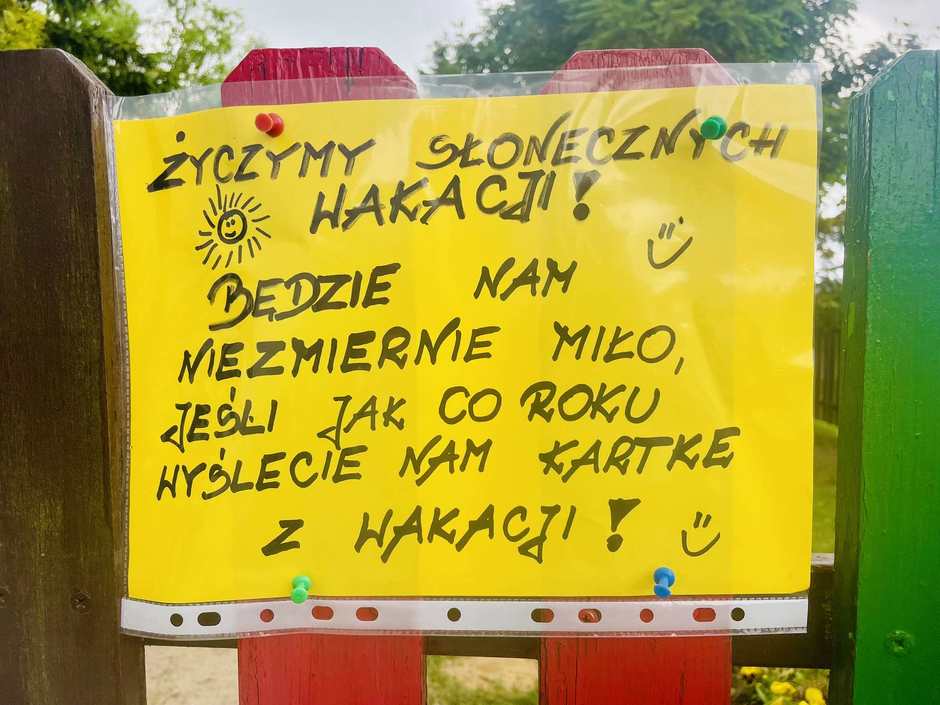 ŻYCZYMY SŁONECZNYCH
WAKACJI!
BĘDZIE NAM
NIEZMIERNIE MIŁO,
JEŚLI JAK CO ROKU
WYŚLECIE NAM KARTKĘ
Z WAKACJI!